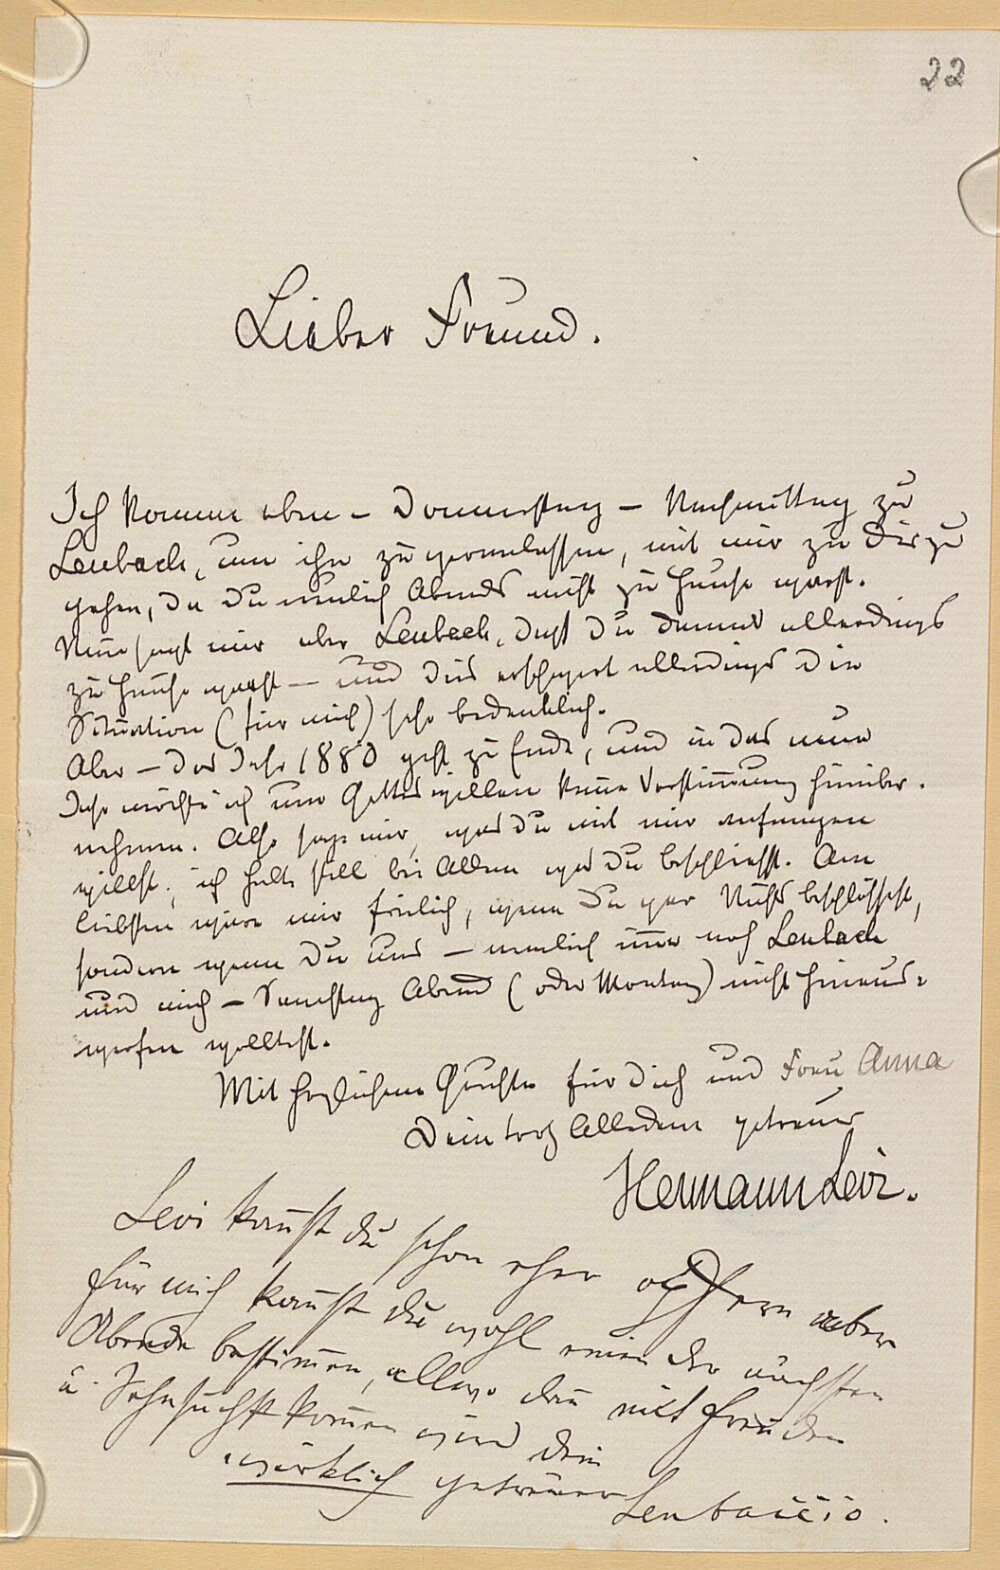 22
Lieber Freund.
Ich komme eben – Donnerstag – Nachmittag zu
Lenbach, um ihn zu veranlassen, mit mir zu Dir zu
gehen, da Du neulich Abends nicht zu Hause warst.
Nun sagt mir aber Lenbach, daß Du damals allerdings
zu Hause warst – und dies erschwert allerdings die
Situation (für mich) sehr bedenklich.
Aber – das Jahr 1880 geht zu Ende, und in das neue
Jahr möchte ich um Gotteswillen keine Verstimmung hinüber-
nehmen. Also sage mir, was Du mit mir anfangen
willst; ich halte still bei Allem was Du beschließt. Am
liebsten wäre mir freilich, wenn Du gar Nichts beschlössest,
sondern wenn Du uns – nemlich immer noch Lenbach
und mich – Samstag Abend (oder Montag) nicht hinaus-
werfen wolltest.
Mit herzlichem Gruße für Dich und Frau Anna
Dein trotz Alledem getreuer
Hermann Levi.
Levi kannst du schon eher opfern aber
für mich kannst du wohl einen der nächsten
Abende bestimmen, allwo dann mit Freuden
u. Sehnsucht kommen wird dein
wirklich getreuer
Lenbaccio.